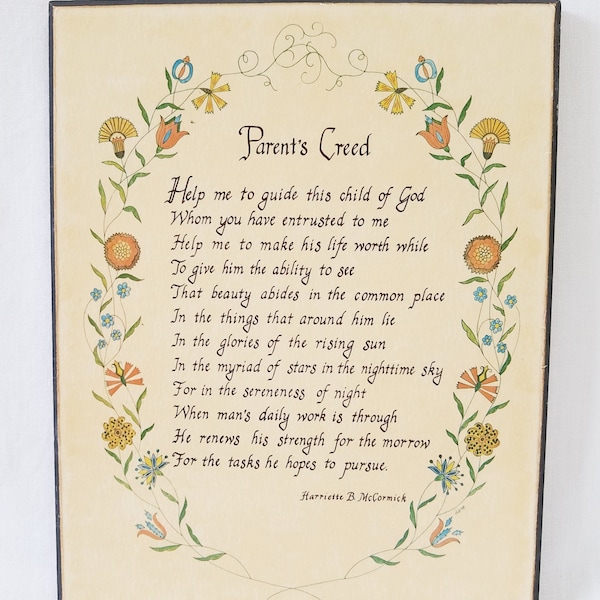 Parent's Creed
Help me to guide this child of God
Whom you have entrusted to me
Help me to make his life worth while
To give him the ability to see
That beauty abides in the common place
In the things that around him lie
In the glories of the rising sun
In the myriad of stars in the nighttime sky
For in the sereneness of night
When man's daily work is through
He renews his strength for the morrow
For the tasks he hopes to pursue.
Harriette B. McCormick